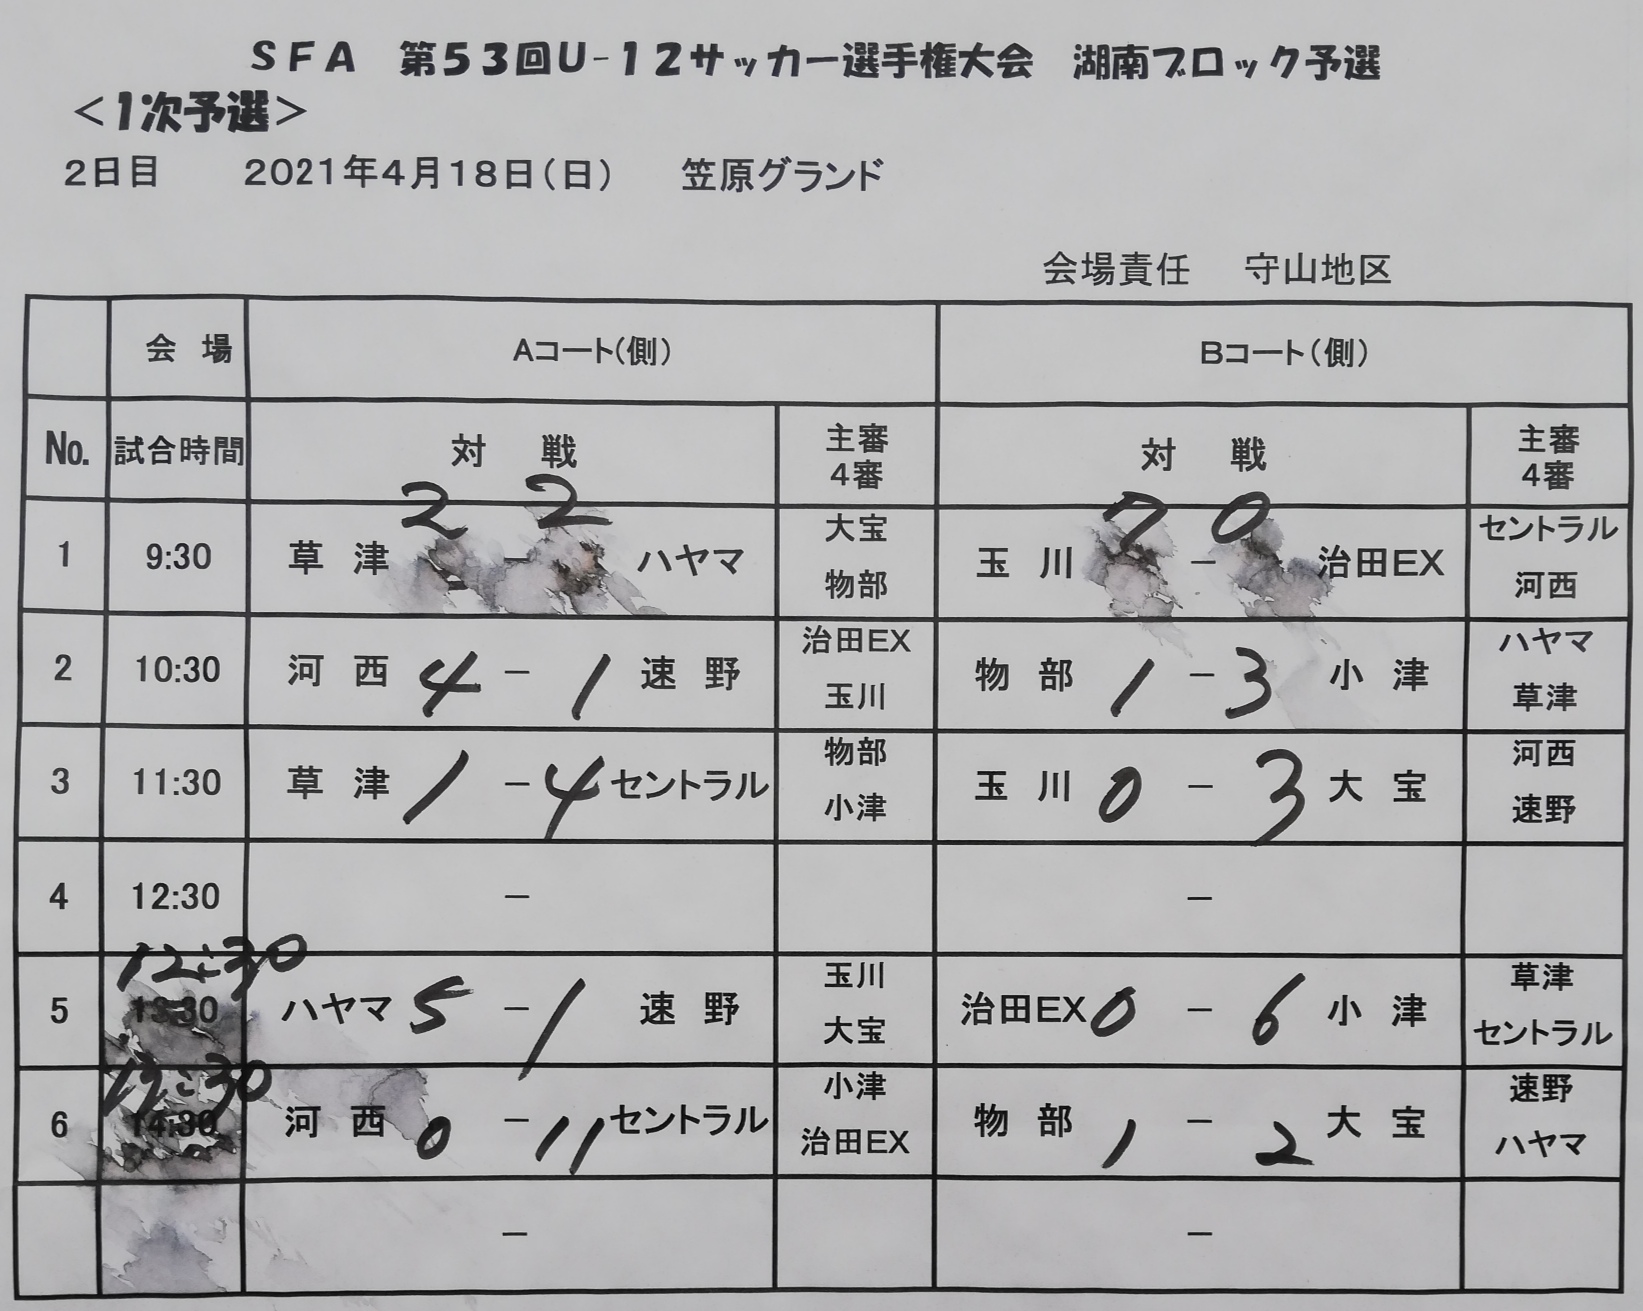 SFA 第53回U-12サッカー選手権大会 湖南ブロック予選
<1次予選>
2日目 2021年4月18日(日) 笠原グランド
会場責任 守山地区
会場 Aコート(側) Bコート(側)
No. 試合時間 対戦 主審 4審 対戦 主審 4審
1 9:30 草津 2 - 2 ハヤマ 大宝 物部 玉川 7 - 0 治田EX セントラル 河西
2 10:30 河西 4 - 1 速野 治田EX 玉川 物部 1 - 3 小津 ハヤマ 草津
3 11:30 草津 1 - 4 セントラル 物部 小津 玉川 0 - 3 大宝 河西 速野
4 12:30 - -
5 12:30 13:30 ハヤマ 5 - 1 速野 玉川 大宝 治田EX 0 - 6 小津 草津 セントラル
6 13:30 14:30 河西 0 - 11 セントラル 小津 治田EX 物部 1 - 2 大宝 速野 ハヤマ
- -